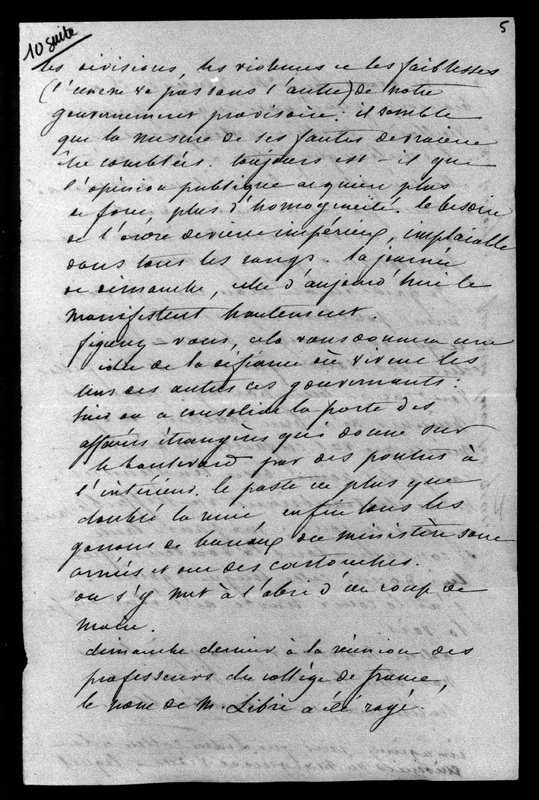 10 suite
5
les divisions, les violences et les faiblesses
(l'un ne va pas sans l'autre) de notre
gouvernement provisoire. il semble
que la mesure de ses fautes devraient
être comblées. toujours est-il que
l'opinion publique acquiert plus
de force, plus d'homogénéité. le besoin
de l'ordre devient impérieux, implacable
dans tous les rangs. la journée
de dimanche, celle d'aujourd'hui le
manifestent hautement.
figurez-vous, cela vous donnera une
idée de la défiance où vivent les
uns des autres ces gouvernants:
hier on a consolidé la porte des
affaires étrangères qui donne sur
le boulevard par des poutres à
l'intérieur. le poste est plus que
doublé la nuit enfin tous les
garçons de bureau du ministère sont
armés et ont des cartouches.
on s'y met à l'abri d'un coup de
main.
dimanche dernier à la réunion des
professeurs du collège de france,
le nom de M. Libri a été rayé.